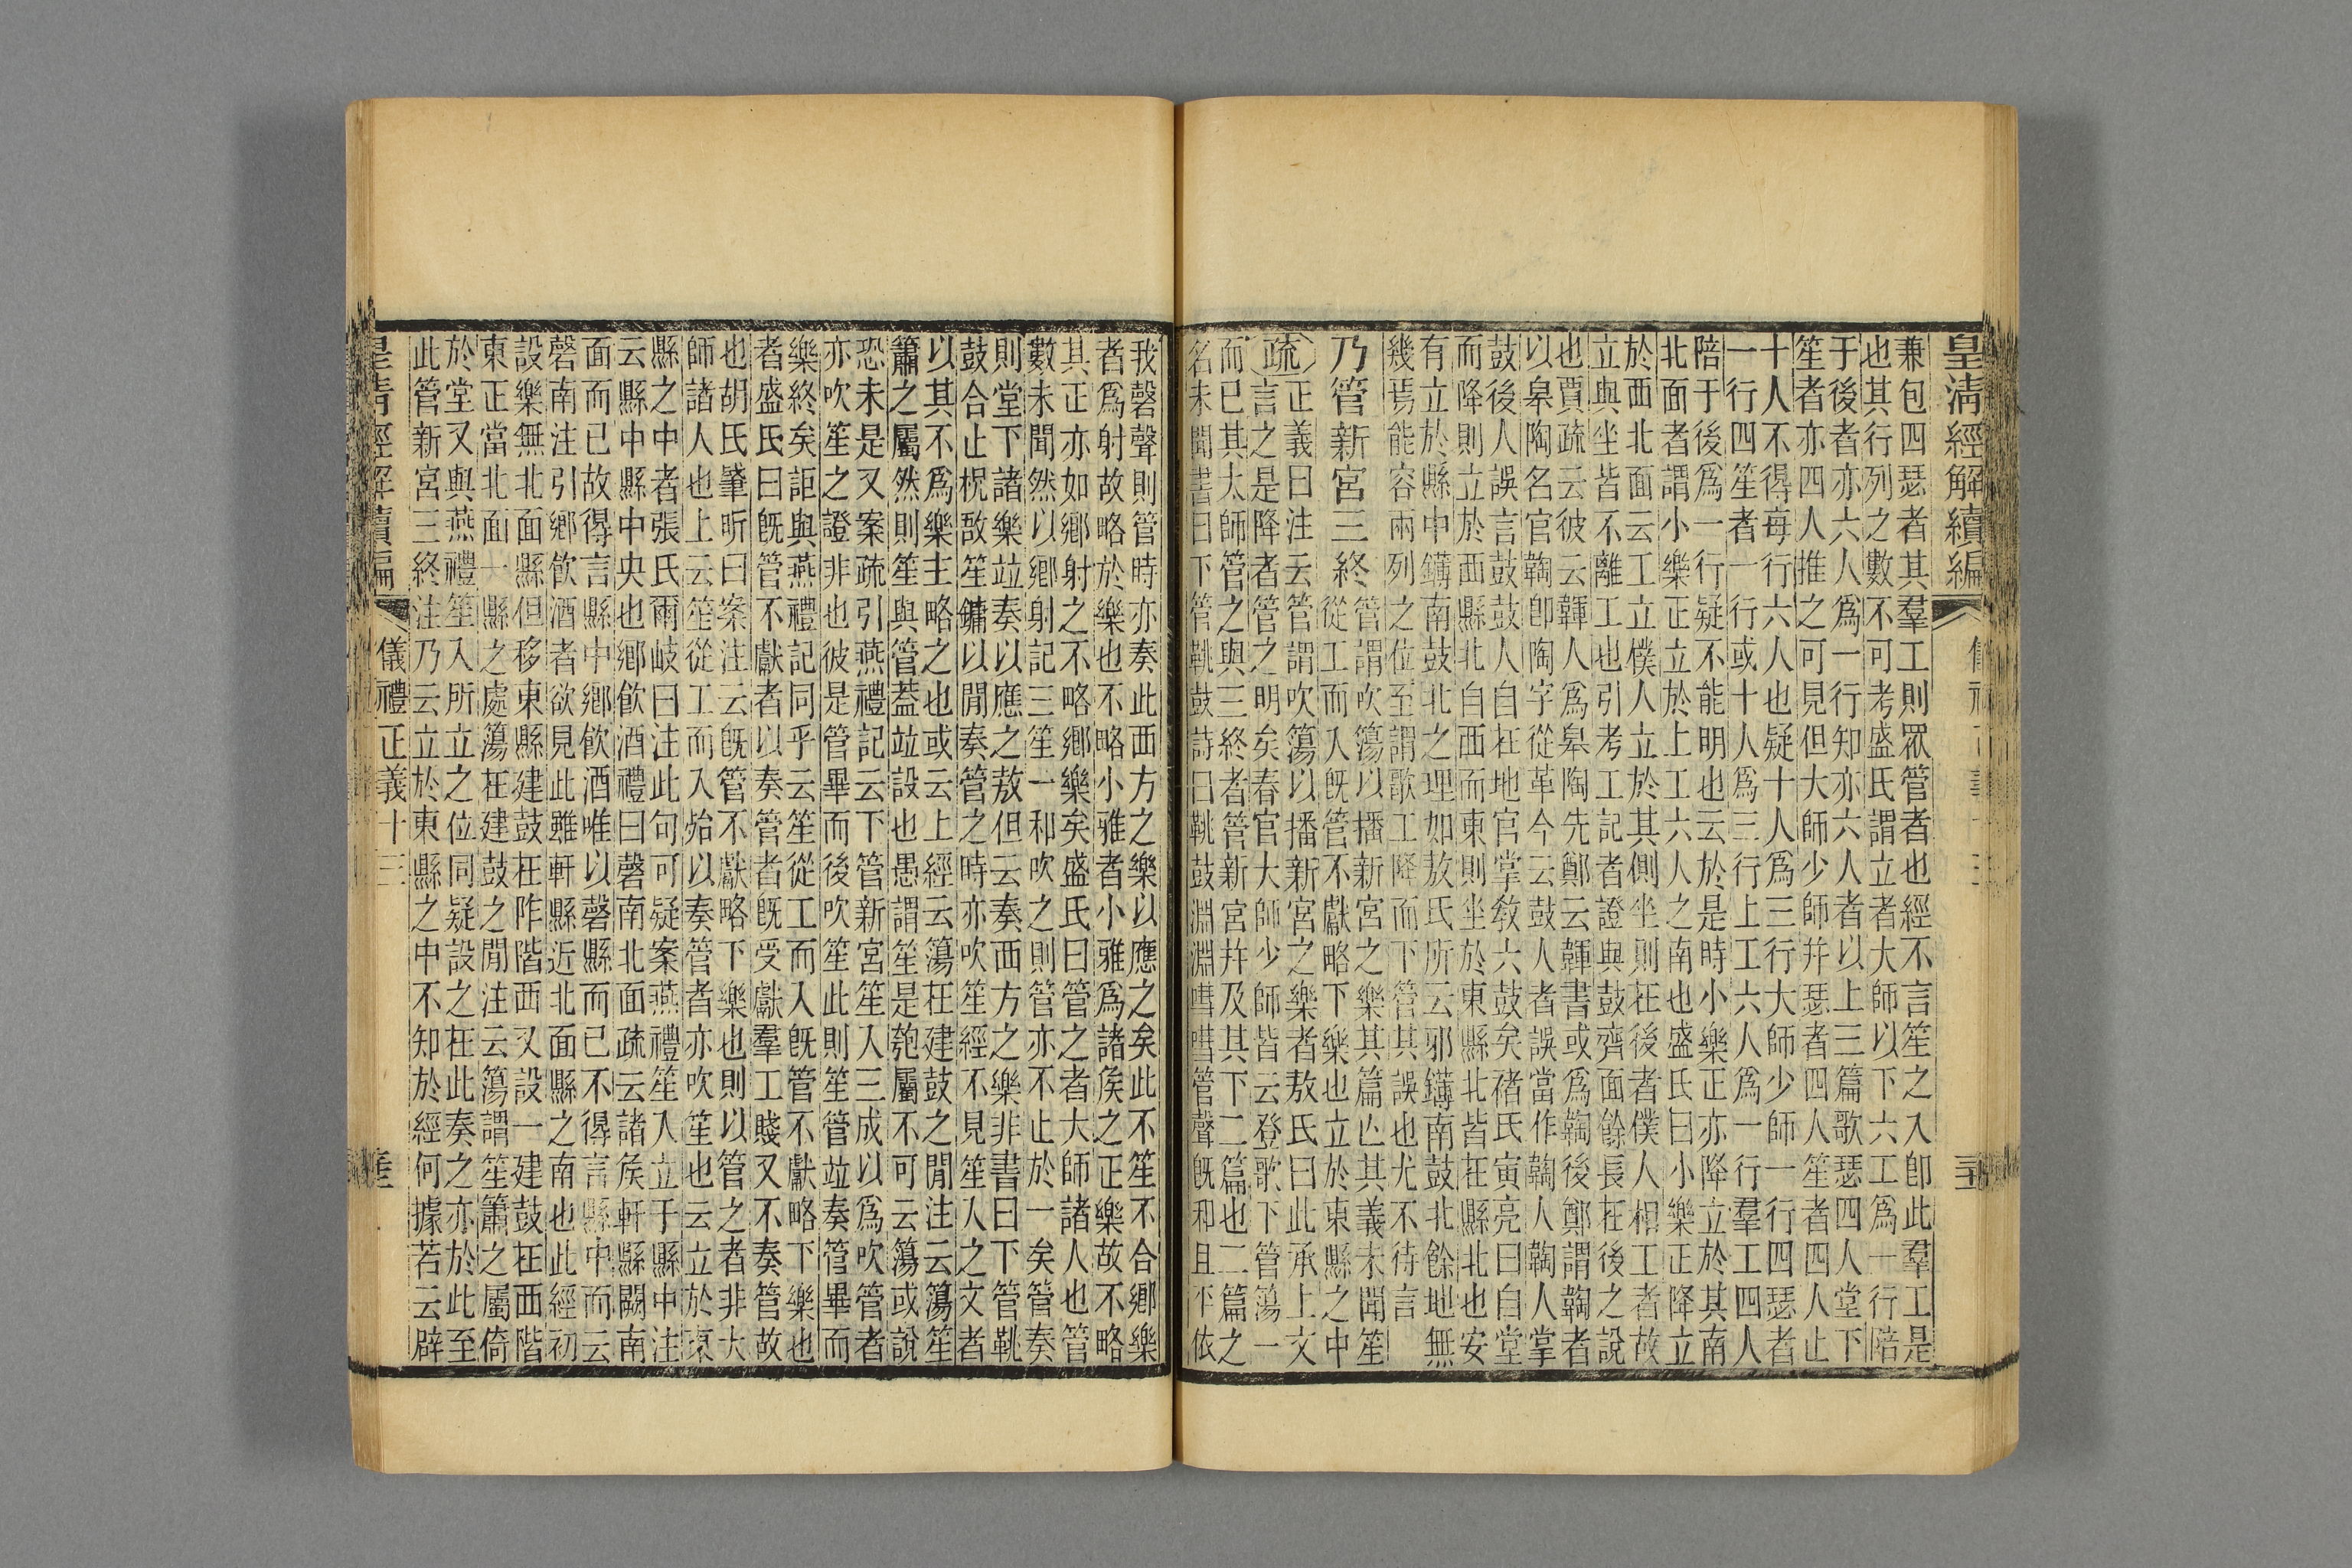 皇清經解續編
兼包四瑟者其羣工則眾管者也經不言笙之入卽此羣工是
也其行列之數不可考盛氏謂立者大師以下六工爲一行陪
于後者亦六人爲一行知亦六人者以上三篇歌瑟四人堂下
笙者亦四人推之可見但大師少師幷瑟者四人笙者四人止
十人不得每行六人也疑十人爲三行大師少師一行四瑟者
一行四笙者一行或十人爲三行上工六人爲一行羣工四人
陪于後爲一行疑不能明也云於是時小樂正亦降立於其南
北面者謂小樂正立於上工六人之南也盛氏曰小樂正降立
於西北面云工立僕人立於其側坐則在後者僕人相工者故
立與坐皆不離工也引考工記者證與鼓齊面餘長在後之說
也賈疏云彼云韗人爲皋陶先鄭云韗書或爲鞠後鄭謂鞠者
以皋陶名官鞠卽陶字從革今云鼓人者誤當作鞠人鞠人掌
鼓後人誤言鼓鼓人自在地官掌敎六鼓矣禇氏寅亮曰自堂
而降則立於西縣北自西而東則坐於東縣北皆在縣北也安
有立於縣中鑮南鼓北之理如敖氏所云邪鑮南鼓北餘地無
幾焉能容兩列之位至謂歌工降而下管其誤也尤不待言
乃管新宮三終管謂吹簜以播新宮之樂其篇亾其義未聞笙
從工而入既管不獻略下樂也立於東縣之中
疏正義曰注云管謂吹簜以播新宮之樂者敖氏曰此承上文
言之是降者管之明矣春官大師少師皆云登歌下管簜一
而已其太師管之與三終者管新宮幷及其下二篇也二篇之
名未聞書曰下管鞉鼓詩曰鞉鼓淵淵嘒嘒管聲旣和且平依
我磬聲則管時亦奏此西方之樂以應之矣此不笙不合鄉樂
者爲射故略於樂也不略小雅者小雅爲諸侯之正樂故不略
其正亦如鄉射之不略鄉樂矣盛氏曰管之者大師諸人也管
數未聞然以鄉射記三笙一和吹之則管亦不止於一矣管奏
則堂下諸樂竝奏以應之敖但云奏西方之樂非書曰下管鞉
鼓合止柷敔笙鏞以閒奏管之時亦吹笙經不見笙入之文者
以其不爲樂主略之也或云上經云簜在建鼓之閒注云簜笙
簫之屬然則笙與管蓋竝設也愚謂笙是匏屬不可云簜或說
恐未是又案疏引燕禮記云下管新宮笙入三成以爲吹管者
亦吹笙之證非也彼是管畢而後吹笙此則笙管竝奏管畢而
樂終矣詎與燕禮記同乎云笙從工而入旣管不獻略下樂也
者盛氏曰旣管不獻者以奏管者旣受獻羣工賤又不奏管故
也胡氏肇昕曰案注云旣管不獻略下樂也則以管之者非大
師諸人也上云笙從工而入始以奏管者亦吹笙也云立於東
縣之中者張氏爾岐曰注此句可疑案燕禮笙入立于縣中注
云縣中縣中央也鄉飮酒禮曰磬南北面疏云諸侯軒縣闕南
面而已故得言縣中鄉飮酒唯以磬縣而已不得言縣中而云
磬南注引鄉飮酒者欲見此雖軒縣近北面縣之南也此經初
設樂無北面縣但移東縣建鼓在阼階西又設一建鼓在西階
東正當北面一縣之處簜在建鼓之閒注云簜謂笙簫之屬倚
於堂又與燕禮笙入所立之位同疑設之在此奏之亦於此至
此管新宮三終注乃云立於東縣之中不知於經何據若云辟
皇淸經解續編
儀禮正義十三